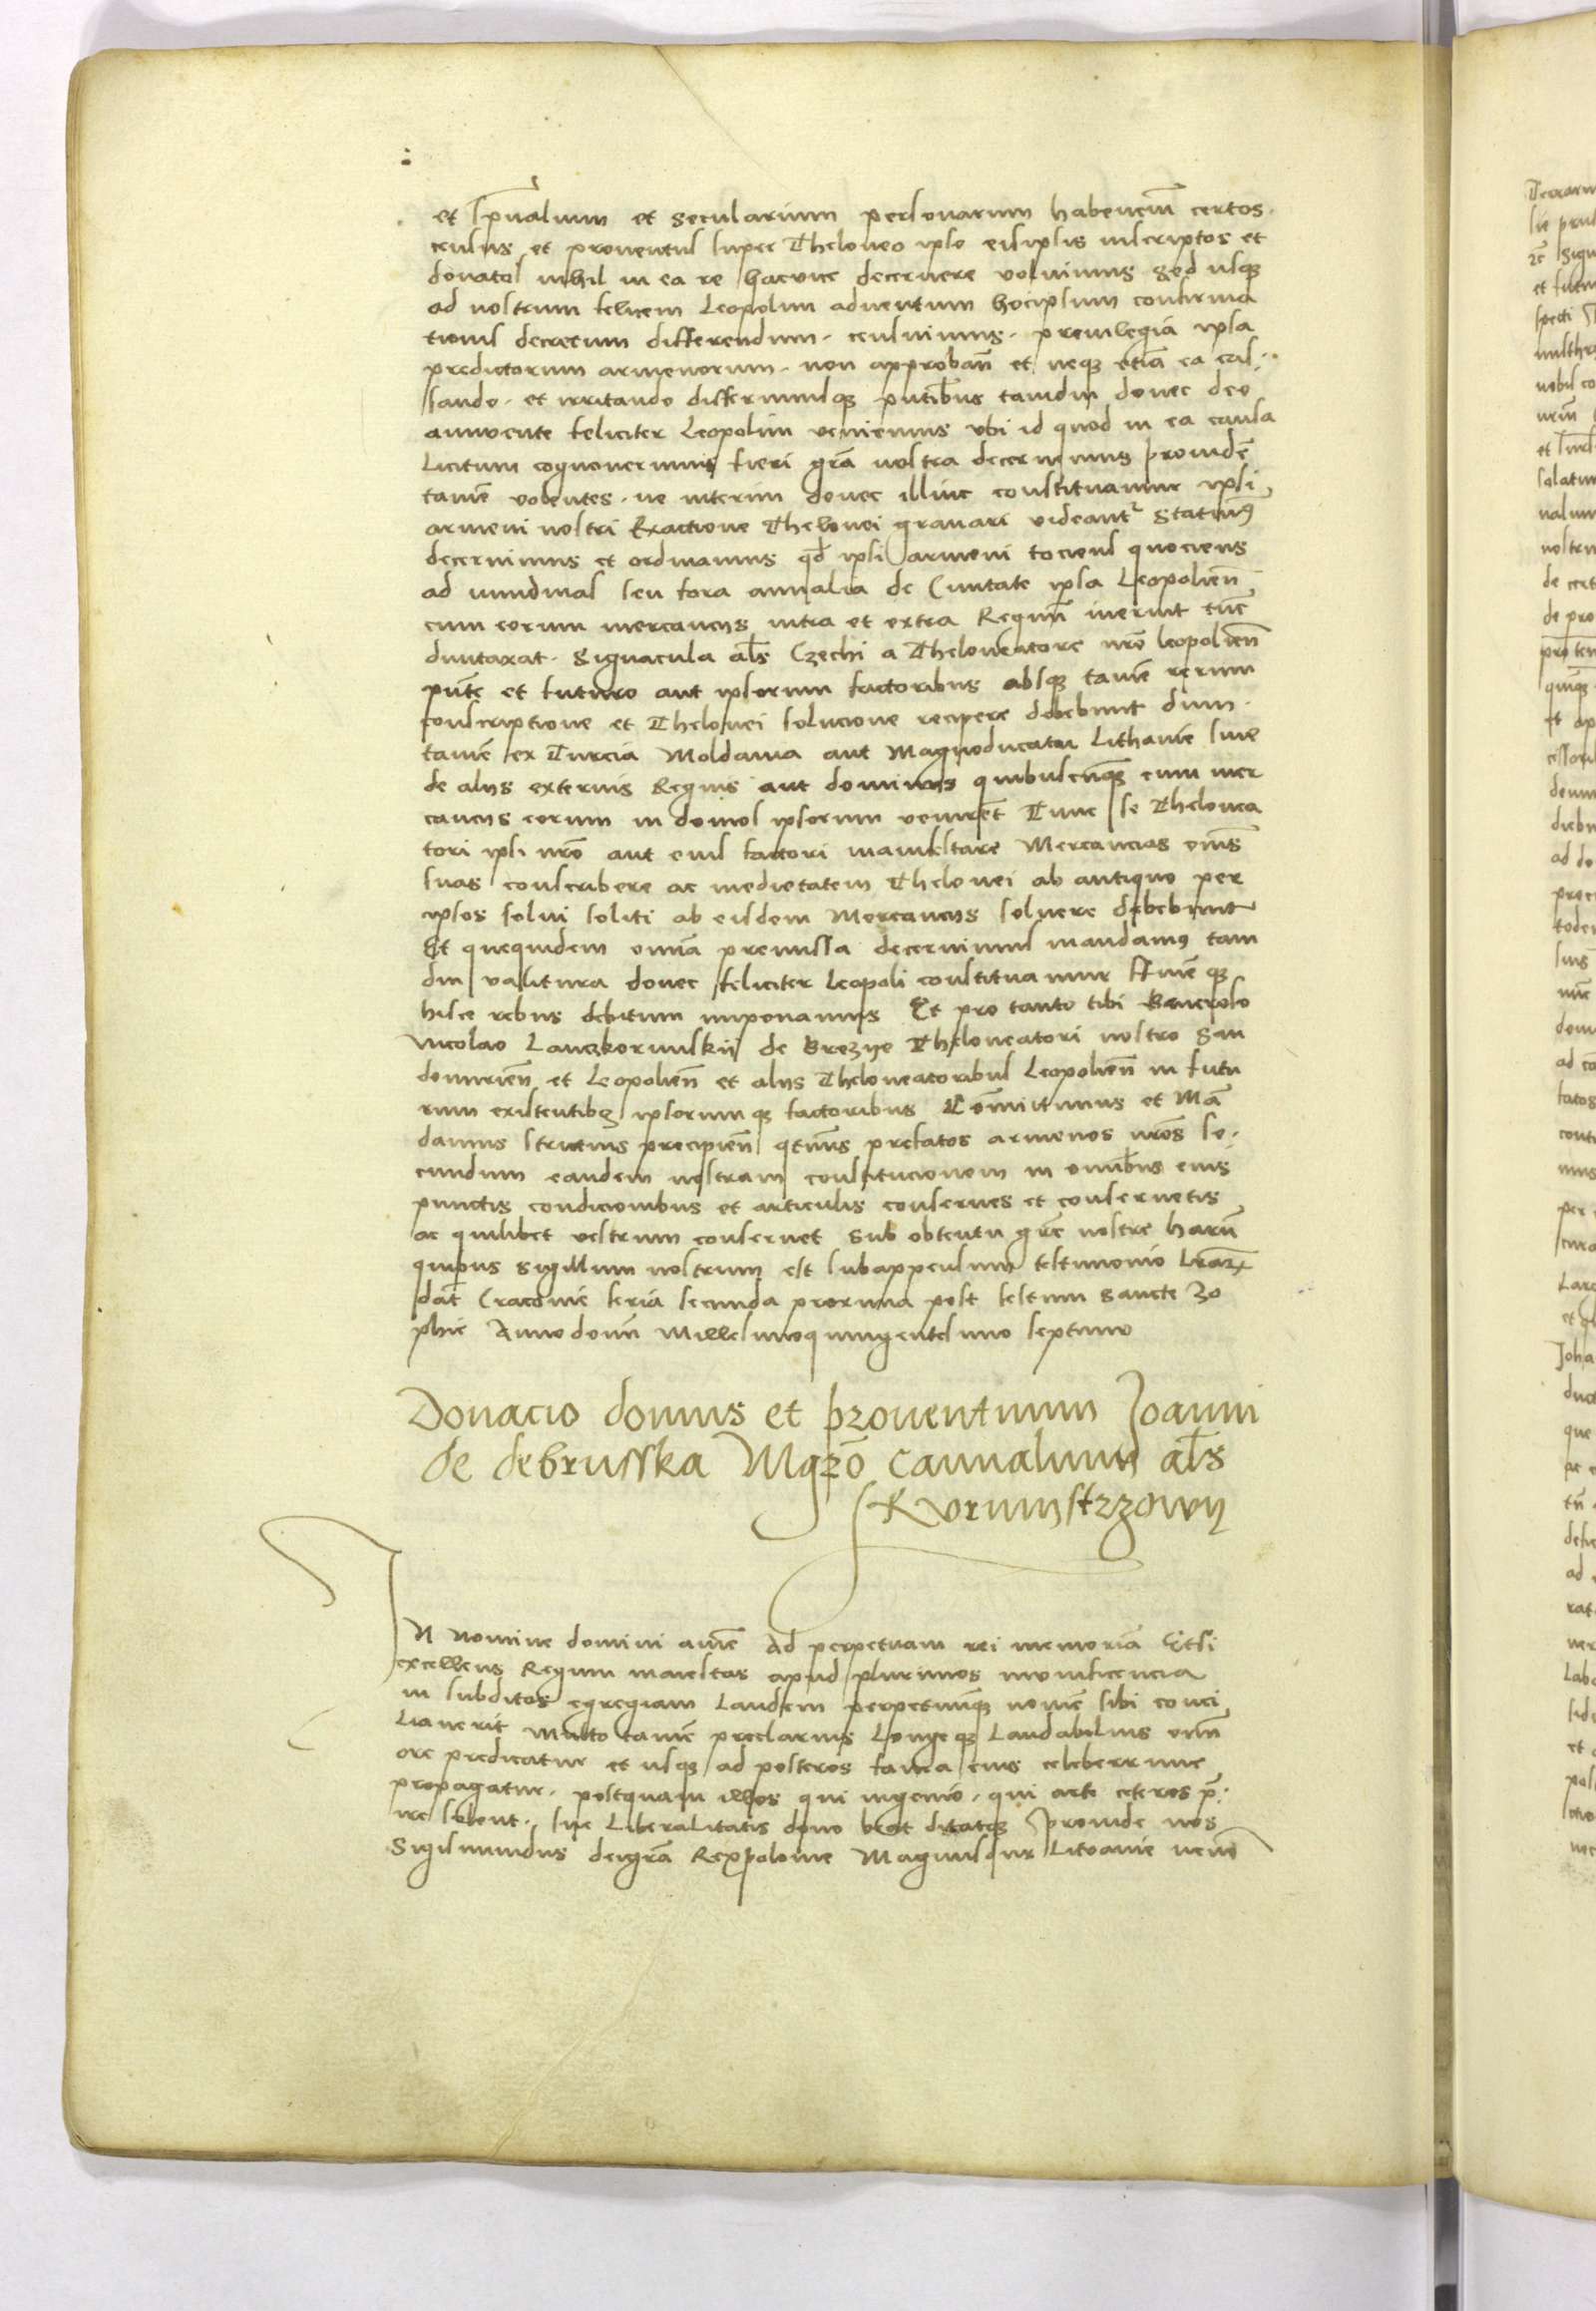 et spūalium et secularium personarum habencīm certos
census et proventus super Theloneo ipso eisipsis inscriptos et
donatos nihil in ea re hacvice decernere voluimus sed usqꝫ
ad nostrum felicem Leopolim adventum hocipsum confirma
tionis decretum differendum censuimus previlegia ipsa
predictorum armenorum non approbañ et neqꝫ etiā ea cas
sando et irritando differimusqꝫ pñtibus tamdiu donec deo
annuente feliciter Leopolim veniemus ubi id quod in ea causa
Licitum cognoverimus fieri grā nostra decernimus providē
tamē volentes ne interim donec illinc constituamur ipsi
armeni nostri Exactione Thelonei gravari videant statuimꝰ
decernimus et ordinamus qd ipsi armeni tociens quociens
ad nundinas seu fora annalia de Civitate ipsa Leopolieñ
cum eorum mercancijs intra et extra Regnū iverint tūc
duntaxat signacula als Czechi a Theloneatore nrō leopolieñ
pñte et futuro aut ipsorum factoribus absqꝫ tamē rerum
conscriptione et Thelonei solucione recipere debebunt dum
tamē ex Turcia Moldavia aut Magnoducatu Lithanie sive
de alijs externis Regnis aut dominijs quibuscūqꝫ cum mer
cancijs eorum in domos ipsorum venirēt Tunc se Thelonea
tori ipsi nrō aut eius factori manifestare Mercancias oēs
suas conscribere ac medietatem Thelonei ab antiquo per
ipsos solvi soliti ab eisdem Mercancijs solvere debebunt
Et quequidem omīa premissa decernimus mandamꝰ tam
diu valitura donec feliciter Leopoli constituamur Finē qꝫ
hisce rebus debitum imponamus Et pro tanto tibi Generoso
Nicolao Lanczkorunskij de Brezye Theloneatori nostro San
domirieñ et Leopolieñ et alijs Theloneatoribus Leopolieñ in futu
rum existentibꝫ ipsorumqꝫ factoribus Comittimus et Mā
damus strictius precipieñ qtenus prefatos armenos nrōs se
cundum eandem nostram constitucionem in omībus eius
punctis condicionibus et articulis conserves et conservetis
ac quilibet vestrum conservet sub obtentu grē nostre harū
quibus sigillum nostrum est subappensum testimonio lrāꝝ
dat Cracovie feria secunda proxima post festum sancte Zo
phie Anno domī Millesimoquingentesimo septimo
Donacio domus et proventuum Joanni
de debrusska Mgrō Cannalium als
Rvrmistrzowy
IN nomine domini amē Ad perpetuam rei memoriā Etsi
excellens Regum maiestas apud plurimos munificencia
in subditos egregiam Laudem perpetuūqꝫ nomē sibi conci
Liaverit Multo tamē preclarius Longeqꝫ Laudabilius omī
ore predicatur et usqꝫ ad posteros fama eius celeberrime
propagatur postquam illos qui ingenio qui arte ceteros p̄
ire solent sue Liberalitatis dono beat ditatqꝫ Proinde nos
Sigismundus deigrā Rex polonie Magnus dux Litvanie necnō